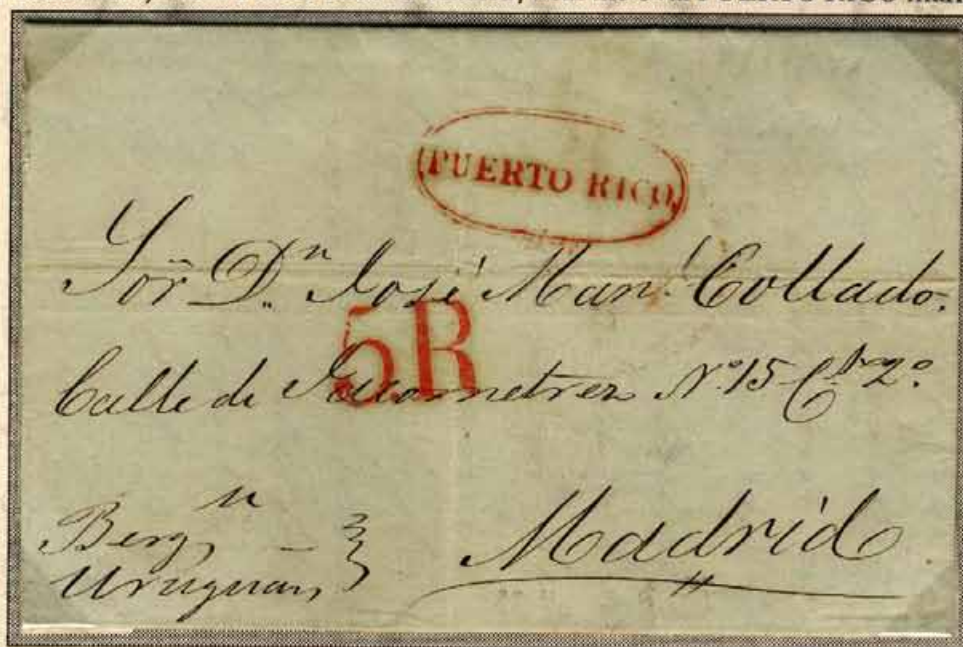 PUERTO RICO
Sor. Dn. José Manl. Collado.
5R
Calle de Jacometrezo Nº 15 Cto 2º
Bergn
Uruguay
Madrid